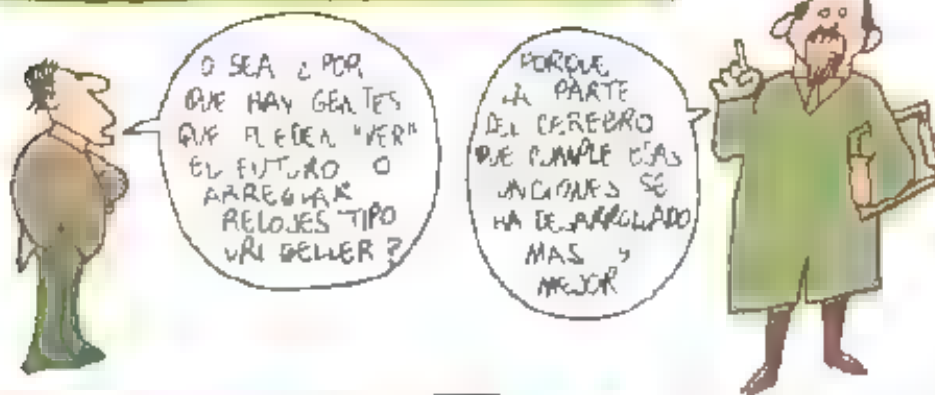 O SEA ¿POR
QUE HAY GENTES
QUE PUEDEN "VER"
EL FUTURO O
ARREGLAR
RELOJES TIPO
URI GELLER?
PORQUE
LA PARTE
DEL CEREBRO
QUE CUMPLE ESAS
FUNCIONES SE
HA DESARROLLADO
MAS Y
MEJOR